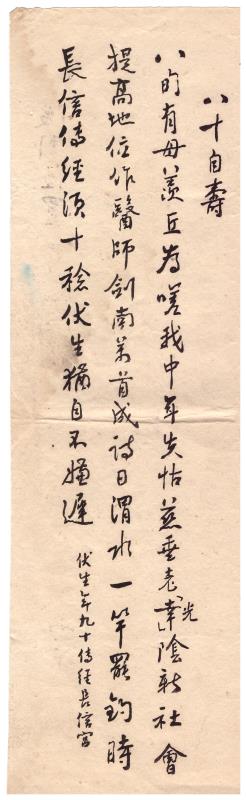 八十自壽
八旬有母羨丘為嗟我中年失怙慈垂老光陰新社會
提高地位作醫師劍南萬首成詩日渭水一竿罷釣時
長信傳經須十稔伏生猶自不嫌遲
伏生年九十傳經長信宮